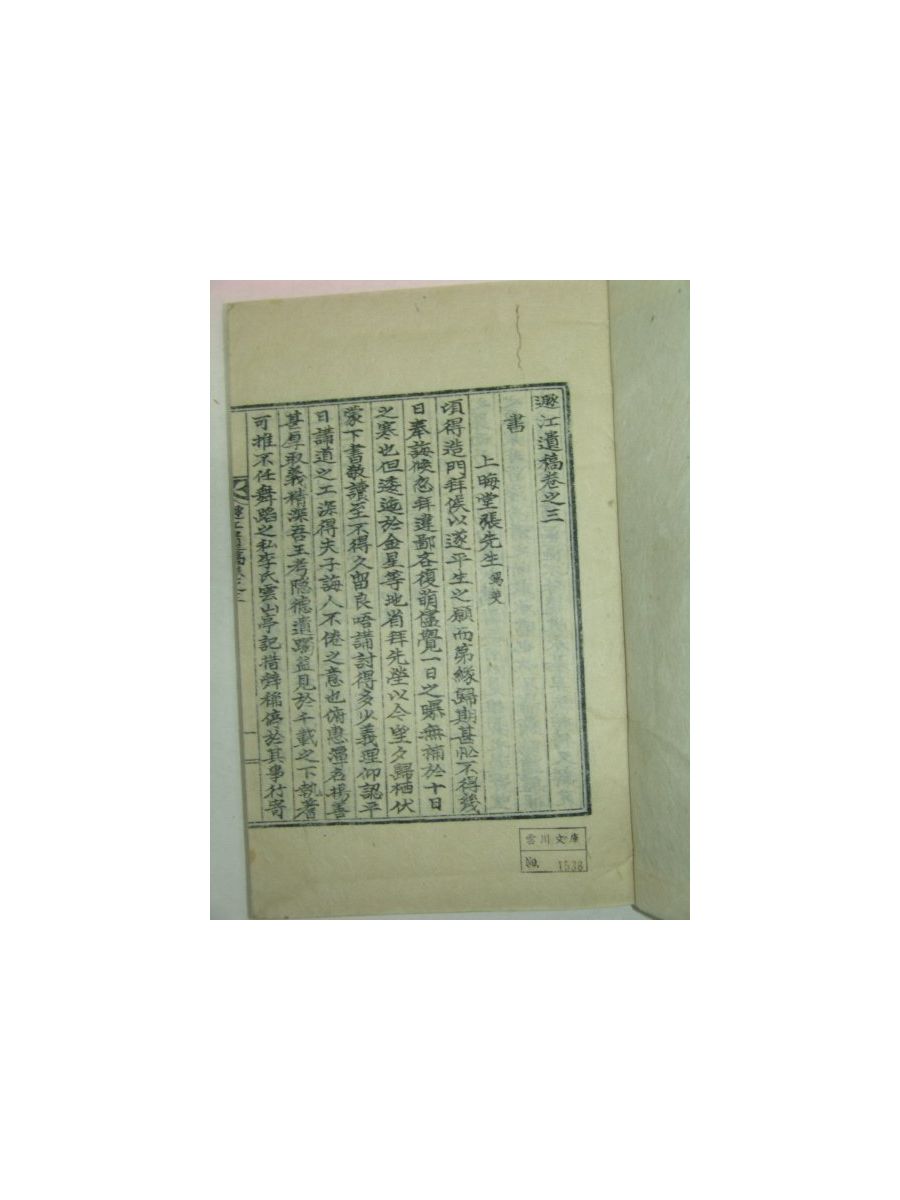 遯江遺稿卷之三
書
上晦堂張先生 錫英
頃得造門拜候以遂平生之願而第緣歸期甚忙不得幾
日奉誨候忽拜違鄙吝復萌儘覺一日之曝無補於十日
之寒也但逶迤於金星等地省拜先塋以今望夕歸栖伏
蒙下書敬讀至不得久留良晤講討得多少義理仰認平
日講道之工深得夫子誨人不倦之意也俯惠潭名揚善
甚厚取義精深吾王考隱德遺躅益見於千載之下孰若
可推不任舞蹈之私李氏雲山亭記措辭稱停於其事行寄
雲川文庫
No. 1538